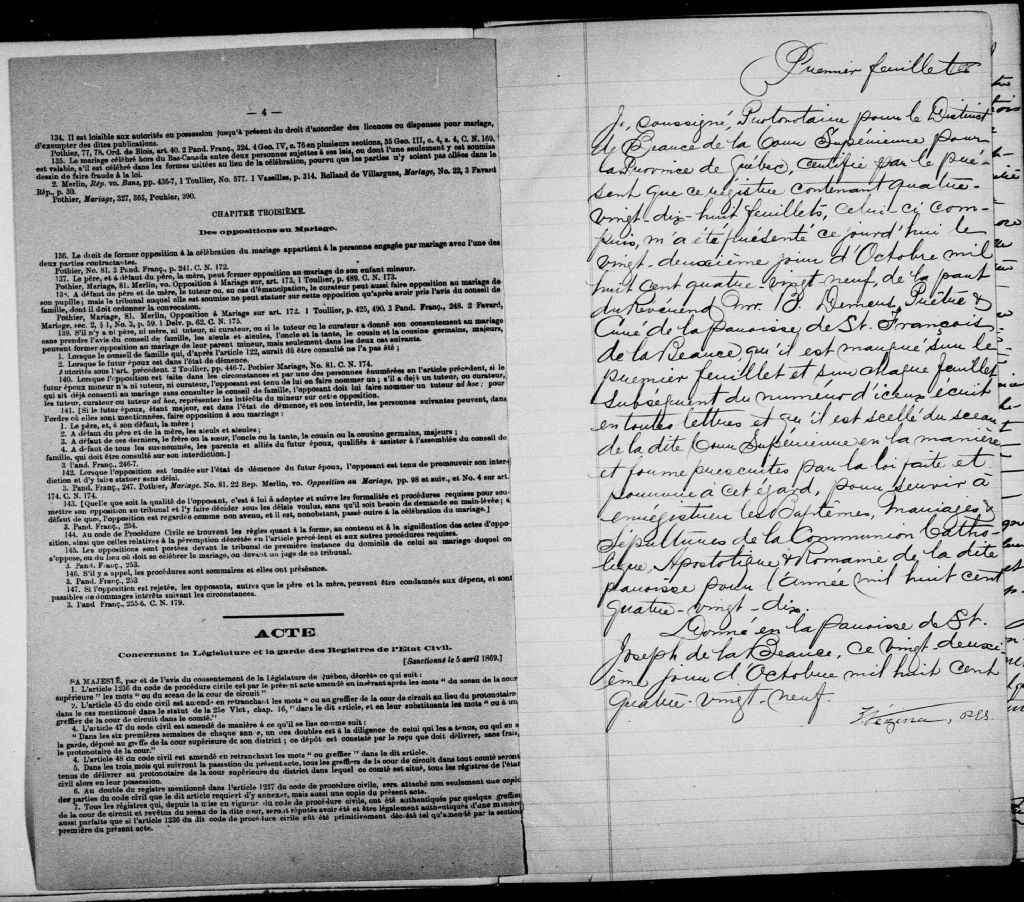 — 4 —
134. Il est loisible aux autorités en possession jusqu'à présent du droit d'accorder des licences ou dispenses pour mariage,
d'exempter des dites publications.
Pothier, 77, 78, Ord. de Blois, art. 40. 2 Pand. Franç., 324. 4 Geo. IV, c. 76 en plusieurs sections, 35 Geo. III, c. 4, s. 4, C. N. 169.
135. Le mariage célébré hors du Bas-Canada entre deux personnes sujettes à ses lois, ou dont l'une seulement y est soumise
est valable, s'il est célébré dans les formes usitées au lieu de la célébration, pourvu que les parties n'y soient pas allées dans le
dessein de faire fraude à la loi.
2. Merlin, Rép. vo. Bans, pp. 436-7, 1 Toullier, No. 577. 1 Vazeilles, p. 314. Rolland de Villargues, Mariage, No. 22, 3 Favard
Rép., p. 30.
Pothier, Mariage, 327, 363, Pouhier, 390.
CHAPITRE TROISIÈME.
Des oppositions au Mariage.
136. Le droit de former opposition à la célébration du mariage appartient à la personne engagée par mariage avec l'une des
deux parties contractantes.
Pothier, No. 81. 3 Pand. Franç., p. 241. C. N. 172.
137. Le père, et à défaut du père, la mère, peut former opposition au mariage de son enfant mineur.
Pothier, Mariage, 81. Merlin, vo. Opposition à Mariage sur, art. 173, 1 Toullier, p. 489. C. N. 173.
138. A défaut de père et de mère, le tuteur ou, au cas d'émancipation, le curateur peut aussi faire opposition au mariage de
son pupille; mais le tribunal auquel elle est soumise ne peut statuer sur cette opposition qu'après avoir pris l'avis du conseil de
famille, dont il doit ordonner la convocation.
Pothier, Mariage, 81. Merlin, Opposition à Mariage sur art. 172. 1 Toullier, p. 425, 490. 3 Pand. Franç., 248. 2 Favard,
Mariage, sec. 2, § 1, No. 3, p. 59. 1 Delv. p. 62. C. N. 175.
139. S'il n'y a ni père, ni mère, ni tuteur, ni curateur, ou si le tuteur ou le curateur a donné son consentement au mariage
sans prendre l'avis du conseil de famille, les aïeuls et aïeules, l'oncle et la tante, le cousin et la cousine germains, majeurs,
peuvent former opposition au mariage de leur parent mineur, mais seulement dans les deux cas suivants.
1. Lorsque le conseil de famille qui, d'après l'article 122, aurait dû être consulté ne l'a pas été;
2. Lorsque le futur époux est dans l'état de démence.
Autorités sous l'art. précédent. 2 Toullier, pp. 446-7. Pothier Mariage, No. 81. C. N. 174.
140. Lorsque l'opposition est faite dans les circonstances et par une des personnes énumérées en l'article précédent, si le
futur époux mineur n'a ni tuteur, ni curateur, l'opposant est tenu de lui en faire nommer un; s'il a déjà un tuteur, ou curateur,
qui ait déjà consenti au mariage sans consulter le conseil de famille, l'opposant doit lui faire nommer un tuteur ad hoc; pour
les tuteur, curateur ou tuteur ad hoc, représenter les intérêts du mineur sur cette opposition.
141. [Si le futur époux, étant majeur, est dans l'état de démence, et non interdit, les personnes suivantes peuvent, dans
l'ordre où elles sont mentionnées, faire opposition à son mariage:
1. Le père, et, à son défaut, la mère;
2. A défaut du père et de la mère, les aïeuls et aïeules;
3. A défaut de ces derniers, le frère ou la sœur, l'oncle ou la tante, le cousin ou la cousine germains, majeurs;
4. A défaut de tous les sus-nommés, les parents et alliés du futur époux, qualifiés à assister à l'assemblée du conseil de
famille, qui doit être consulté sur son interdiction.]
3 Pand. Franç., 246-7.
142. Lorsque l'opposition est fondée sur l'état de démence du futur époux, l'opposant est tenu de promouvoir son inter-
diction et d'y faire statuer sans délai.
3. Pand. Franç., 247. Pothier, Mariage. No. 81. 22 Rep. Merlin, vo. Opposition au Mariage, pp. 98 et suiv., et No. 4 sur art.
174. C. N. 174.
143. [Quelle que soit la qualité de l'opposant, c'est à lui à adopter et suivre les formalités et procédures requises pour sou-
mettre son opposition au tribunal et l'y faire décider sous les délais voulus, sans qu'il soit besoin de demande en main-levée; à
défaut de quoi, l'opposition est regardée comme non avenue, et il est, nonobstant, passé outre à la célébration du mariage.]
3. Pand. Franç., 254.
144. Au code de Procédure Civile se trouvent les règles quant à la forme, au contenu et à la signification des actes d'oppo-
sition, ainsi que celles relatives à la péremption décrétée en l'article précédent et aux autres procédures requises.
145. Les oppositions sont portées devant le tribunal de première instance du domicile de celui au mariage duquel on
s'oppose, ou du lieu où doit se célébrer le mariage, ou devant un juge de ce tribunal.
3. Pand. Franç., 253.
146. S'il y a appel, les procédures sont sommaires et elles ont préséance.
3. Pand. Franç., 253
147. Si l'opposition est rejetée, les opposants, autres que le père et la mère, peuvent être condamnés aux dépens, et sont
passibles de dommages intérêts suivant les circonstances.
3. Pand Franç., 255-6. C. N. 179.
ACTE
Concernant la Législature et la garde des Registres de l'Etat Civil.
[Sanctionné le 5 avril 1869.]
SA MAJESTÉ, par et de l'avis du consentement de la législature de Québec, décrète ce qui suit:
1. L'article 1236 du code de procédure civile est par le présent acte amendé en insérant après les mots " du sceau de la cour
supérieure " les mots " ou du sceau de la cour de circuit "
2. L'article 45 du code civil est amendé en retranchant les mots " ou au greffier de la cour de circuit au lieu du protonotaire
dans le cas mentionné dans le statut de la 25e Vict., chap. 16, " dans le dit article, et en leur substituants les mots " ou à un
greffier de la cour de circuit dans le comté."
4. L'article 47 du code civil est amendé de manière à ce qu'il se lise comme suit:
" Dans les six premières semaines de chaque année, un des doubles est à la diligence de celui qui les a tenus, ou qui en a
la garde, déposé au greffe de la cour supérieure de son district; ce dépôt est constaté par le reçu que doit délivrer, sans frais,
le protonotaire de la cour."
4. L'article 48 du code civil est amendé en retranchant les mots " ou greffier " dans le dit article.
5. Dans les trois mois qui suivront la passation du présent acte, tous les greffiers de la cour de circuit dans tout comté seront
tenus de délivrer au protonotaire de la cour supérieure du district dans lequel ce comté est situé, tous les régistres de l'état
civil alors en leur possession.
6. Au double du registre mentionné dans l'article 1237 du code de procédure civile, sera attaché non seulement une copie
des parties du code civil que le dit article requiert d'y annexer, mais aussi une copie du présent acte.
7. Tous les régistres qui, depuis la mise en vigueur du code de procédure civile, ont été authentiqués par quelque greffier
de la cour de circuit et revêtus du sceau de la dite cour, seront réputés avoir été et être légalement authentiqués d'une manière
aussi parfaite que si l'article 1236 du dit code de procédure civile eût été primitivement décrété tel qu'amendé par la section
première du présent acte.
Premier feuillet
Je, soussigné, Protonotaire pour le District
de Beauce de la Cour Supérieure pour
la Province de Québec, certifie par le pré-
sent que ce registre contenant quatre-
vingt-dix-huit feuillets, celui-ci com-
pris, m'a été présenté ce jourd'hui le
vingt-deuxième jour d'Octobre mil
huit cent quatre-vingt neuf, de la part
du Révérend Mr F. Demers, Prêtre &
Curé de la paroisse, de St. François
de la Beauce, qu'il est marqué sur le
premier feuillet et sur chaque feuillet
subséquent du numéro d'iceux écrit
en toutes lettres et qu'il est scellé du sceau
de la dite Cour Supérieure en la manière
et forme prescrites par la loi faite et
pourvue à cet égard, pour servir à
enrégistrer les Baptêmes, Mariages, &
Sépultures de la Communion Catho-
lique, Apostolique & Romaine de la dite
paroisse pour l'année mil huit cent
quatre-vingt-dix.
Donné en la paroisse de St.
Joseph de la Beauce, ce vingt-deuxi-
ème jour d'Octobre mil huit cent
quatre-vingt neuf.
Vézina, P.C.S.